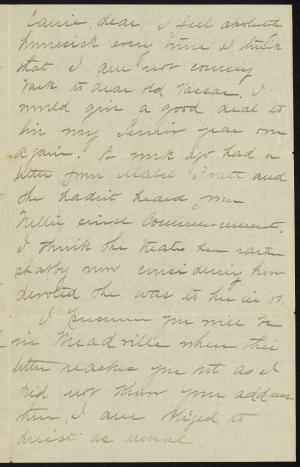 Carrie, dear, I feel absolutely
homesick every time I think
that I am not coming
back to dear old Vassar. I
would give a good deal to
live my Senior year over
again. A week ago had a
letter from Mabel and
she hadn't heard from
Nellie since Commencement.
I think she treats her rather
shabby now considering how
devoted she was to her in
I presume you will be
in Meadville when this
letter reaches you but as I
did not know your address
there, I am obliged to
direct as usual